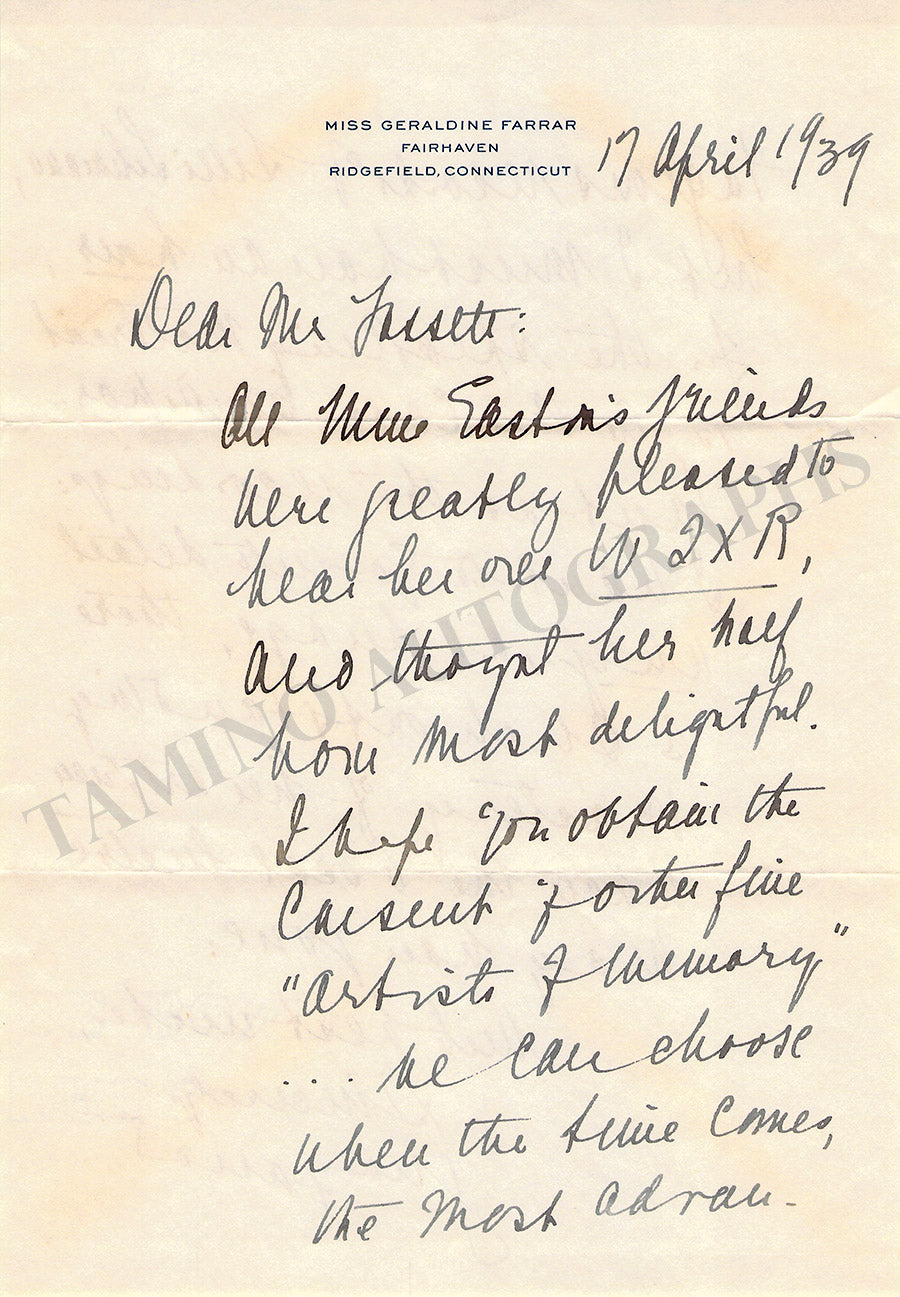 MISS GERALDINE FARRAR
FAIRHAVEN
RIDGEFIELD, CONNECTICUT
17 April 1939
Dear Mr Fassett:
All Mme Easton's friends
were greatly pleased to
hear her over W Q X R,
and thought her half
hour most delightful.
I hope you obtain the
consent of other fine
"Artists of memory"
... we can choose
when the time comes,
the most advan-
TAMINO AUTOGRAPHS